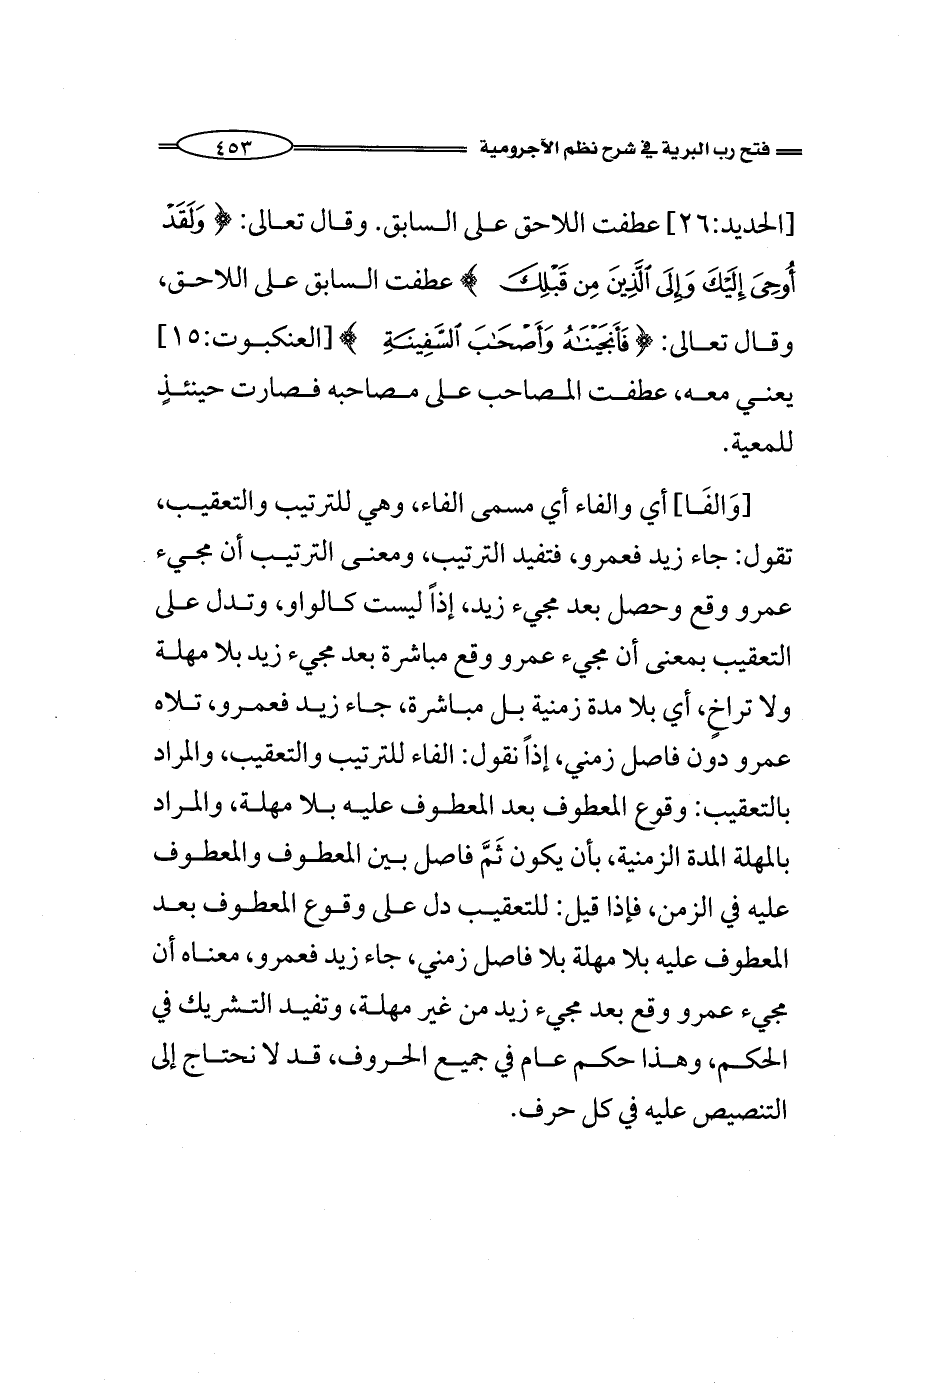 فتح رب البرية في شرح نظم الآجرومية ٤٥٣
[الحديد:٢٦] عطفت اللاحق على السابق. وقال تعالى: ﴿ وَلَقَدْ
أُوحِيَ إِلَيْكَ وَإِلَى ٱلَّذِينَ مِن قَبْلِكَ ﴾ عطفت السابق على اللاحق،
وقال تعالى: ﴿ فَأَنجَيْنَٰهُ وَأَصْحَٰبَ ٱلسَّفِينَةِ ﴾ [العنكبوت:١٥]
يعني معه، عطفت المصاحب على مصاحبه فصارت حينئذٍ
للمعية.
[وَالفَا] أي والفاء أي مسمى الفاء، وهي للترتيب والتعقيب،
تقول: جاء زيد فعمرو، فتفيد الترتيب، ومعنى الترتيب أن مجيء
عمرو وقع وحصل بعد مجيء زيد، إذاً ليست كالواو، وتدل على
التعقيب بمعنى أن مجيء عمرو وقع مباشرة بعد مجيء زيد بلا مهلة
ولا تراخٍ، أي بلا مدة زمنية بل مباشرة، جاء زيد فعمرو، تلاه
عمرو دون فاصل زمني، إذاً نقول: الفاء للترتيب والتعقيب، والمراد
بالتعقيب: وقوع المعطوف بعد المعطوف عليه بلا مهلة، والمراد
بالمهلة المدة الزمنية، بأن يكون ثَمَّ فاصل بين المعطوف والمعطوف
عليه في الزمن، فإذا قيل: للتعقيب دل على وقوع المعطوف بعد
المعطوف عليه بلا مهلة بلا فاصل زمني، جاء زيد فعمرو، معناه أن
مجيء عمرو وقع بعد مجيء زيد من غير مهلة، وتفيد التشريك في
الحكم، وهذا حكم عام في جميع الحروف، قد لا نحتاج إلى
التنصيص عليه في كل حرف.